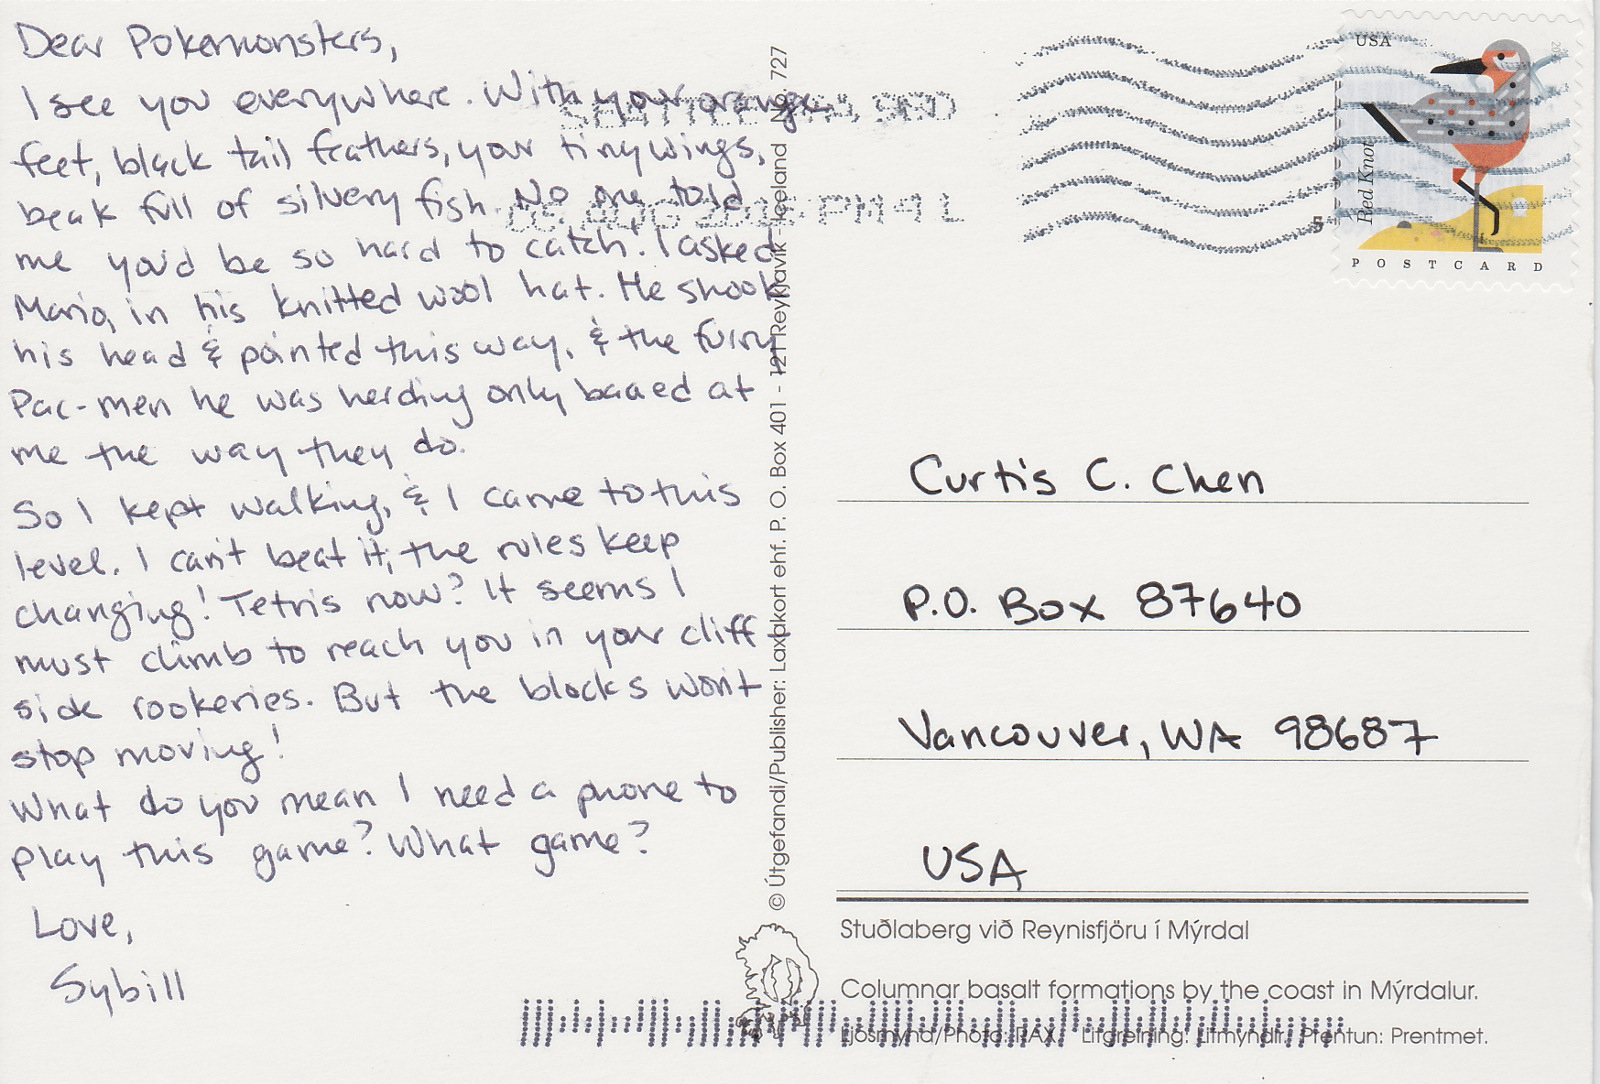 Dear Pokemonsters,
I see you everywhere. With your orange
feet, black tail feathers, your tiny wings,
beak full of silvery fish. No one told
me you'd be so hard to catch! I asked
Mario, in his knitted wool hat. He shook
his head & pointed this way, & the furry
Pac-men he was herding only baaed at
me the way they do.
So I kept walking, & I came to this
level. I can't beat it; the rules keep
changing! Tetris now? It seems I
must climb to reach you in your cliff
side rookeries. But the blocks won't
stop moving!
What do you mean I need a phone to
play this game? What game?
Love,
Sybill
© Útgefandi/Publisher: Laxakort ehf. P. O. Box 401 - 121 Reykjavík - Iceland No 727
SEATTLE WA
AUG PM 4 L
USA
Red Knot
POSTCARD
Curtis C. Chen
P.O. Box 87640
Vancouver, WA 98687
USA
Stuðlaberg við Reynisfjöru í Mýrdal
Columnar basalt formations by the coast in Mýrdalur.
Ljósmynd/Photo: RAX. Litgreining: Litmyndir. Prentun: Prentmet.